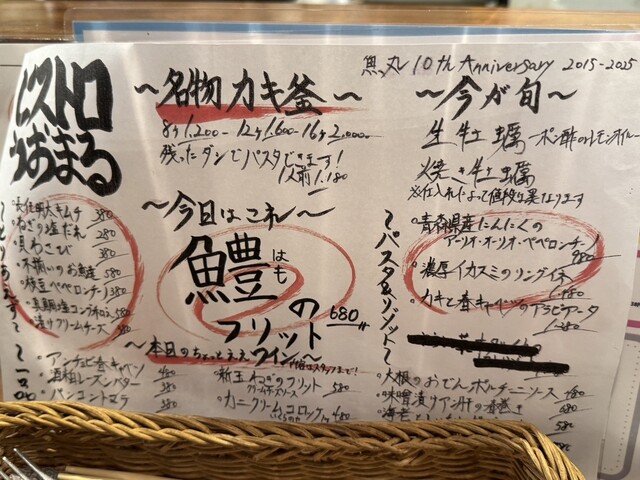 ビストロ
うおまる
魚丸 10th Anniversary 2015-2025
〜名物カキ釜〜
8ケ1,200- 12ケ1,600- 16ケ2,000-
残ったダシでパスタできます!
1人前1,180
〜今が旬〜
生牡蠣
焼き牡蠣
※仕入れによって値段は異なります
〜今日はコレ〜
鱧の
はも
フリット
680
〜とりあえず〜
キムチ 380
ねぎ塩だれ 280
貝わさび 380
不揃いのお漬産 580
枝豆ペペロンチーノ 380
真鯛塩コンブ和え 580
漬けクリームチーズ 380
〜一品〜
・アンチョビ春キャベツ 480
・酒粕レーズンバター 380
・パンコントマテ 380
〜本日のちょっとええワイン〜
・新玉ネギのフリット 580
・カニクリームコロッケ 480
〜パスタ&リゾット〜
・青森県産にんにくの
アーリオ・オーリオ・ペペロンチーノ
980
・濃厚イカスミのリングイネ
1,180
・カキと春キャベツのアラビアータ
1,280
・大根のおでんポルチーニソース 480
・味噌漬り 春巻き 680
・海老と
580